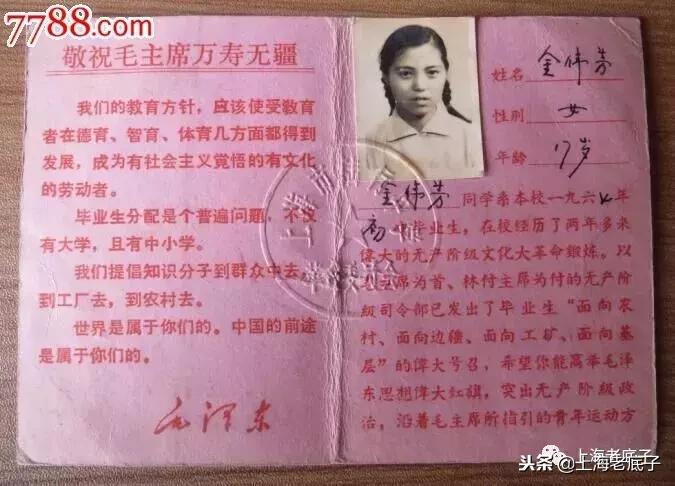 7788.com
敬祝毛主席万寿无疆
我们的教育方针，应该使受教育
者在德育、智育、体育几方面都得到
发展，成为有社会主义觉悟的有文化
的劳动者。
毕业生分配是个普遍问题，不仅
有大学，且有中小学。
我们提倡知识分子到群众中去，
到工厂去，到农村去。
世界是属于你们的。中国的前途
是属于你们的。
毛泽东
姓名 金伟芳
性别 女
年龄 17岁
上海市
革命委员会
金伟芳 同学系本校一九六七年
高中毕业生，在校经历了两年多来
偉大的无产阶级文化大革命鍛炼。以
毛主席为首、林付主席为付的无产阶
級司令部已发出了毕业生“面向农
村、面向边疆、面向工矿、面向基
层”的偉大号召，希望你能高举毛泽
东思想偉大红旗，突出无产阶級政
治，沿着毛主席所指引的青年运动方
上海老底子
头条@上海老底子